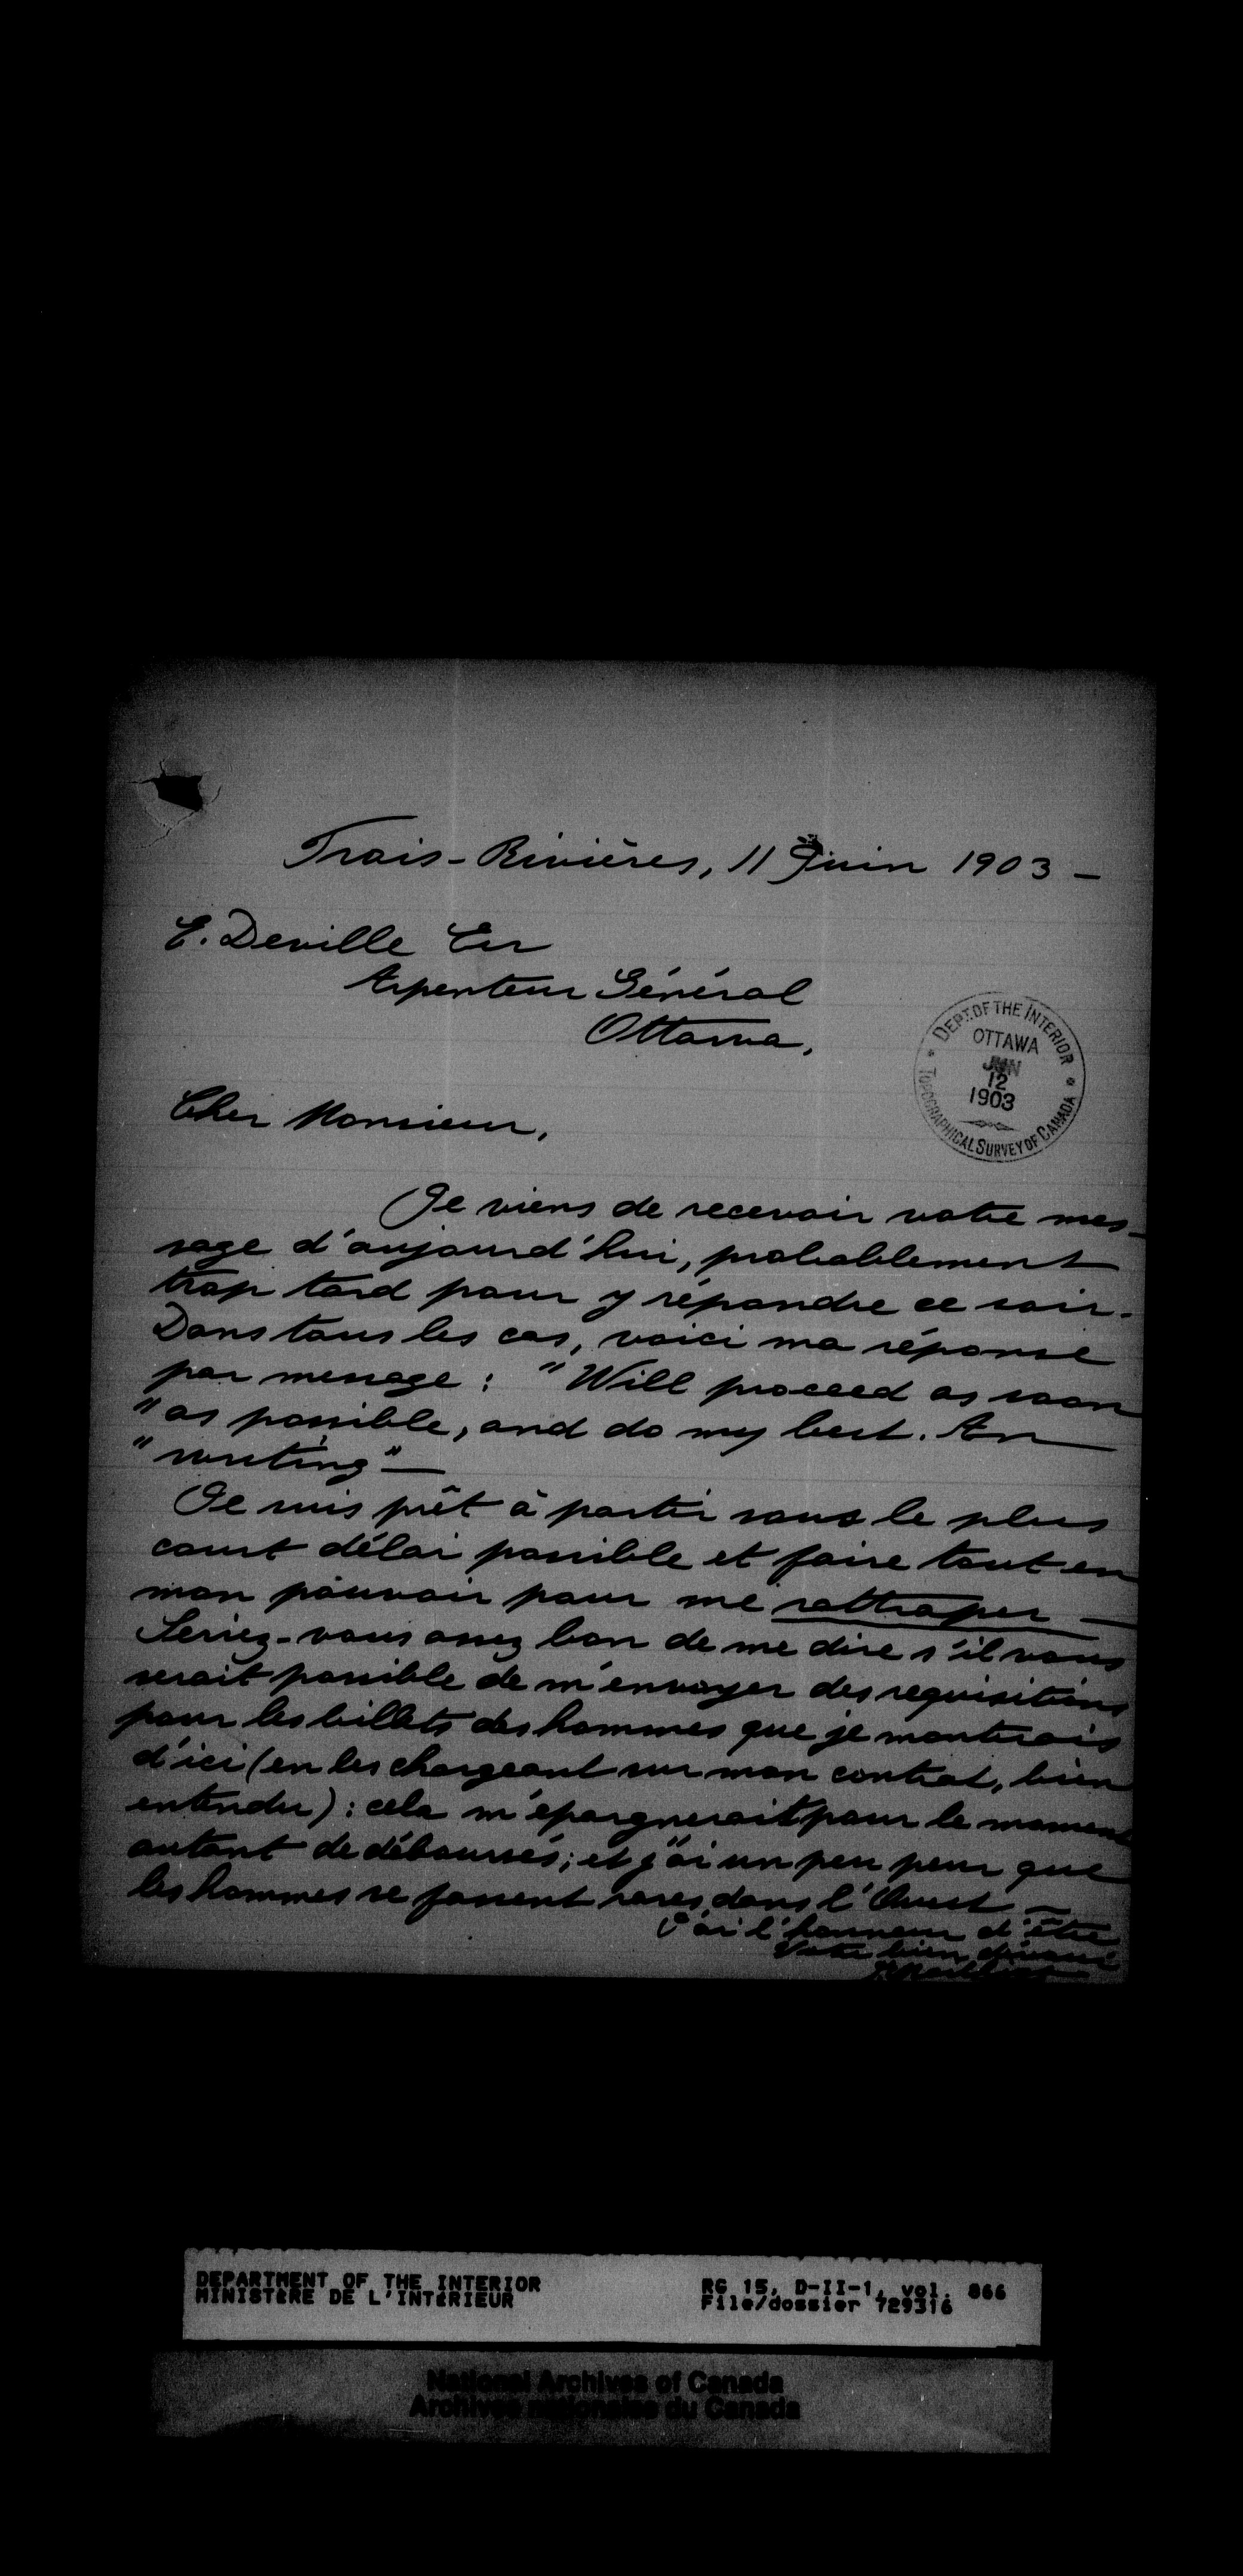 Trois-Rivières, 11 Juin 1903 –
E. Deville Ecr
Arpenteur Général
Ottawa.
DEPT. OF THE INTERIOR
OTTAWA
JUN
12
1903
TOPOGRAPHICAL SURVEY OF CANADA
Cher Monsieur,
Je viens de recevoir votre mes-
sage d'aujourd'hui, probablement
trop tard pour y répondre ce soir.
Dans tous les cas, voici ma réponse
par message : "Will proceed as soon
"as possible, and do my best. Am
"writing" –
Je suis prêt à partir sous le plus
court délai possible et faire tout en
mon pouvoir pour me rattraper –
Seriez-vous assez bon de me dire s'il vous
serait possible de m'envoyer des requisitions
pour les billets des hommes que je monterais
d'ici (en les chargeant sur mon contrat, bien
entendu) : cela m'épargnerait pour le moment
autant de déboursés; et j'ai un peu peur que
les hommes se fassent rares dans l'Ouest –
J'ai l'honneur d'être
Votre bien dévoué
DEPARTMENT OF THE INTERIOR
MINISTÈRE DE L'INTÉRIEUR
RG 15, D-II-1, vol. 866
File/dossier 729316
National Archives of Canada
Archives nationales du Canada